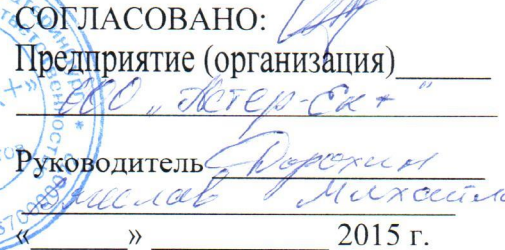 СОГЛАСОВАНО:
Предприятие (организация)______
ООО „Астер-Ек+"
Руководитель Дорохин
Михайло
«______» ____________ 2015 г.